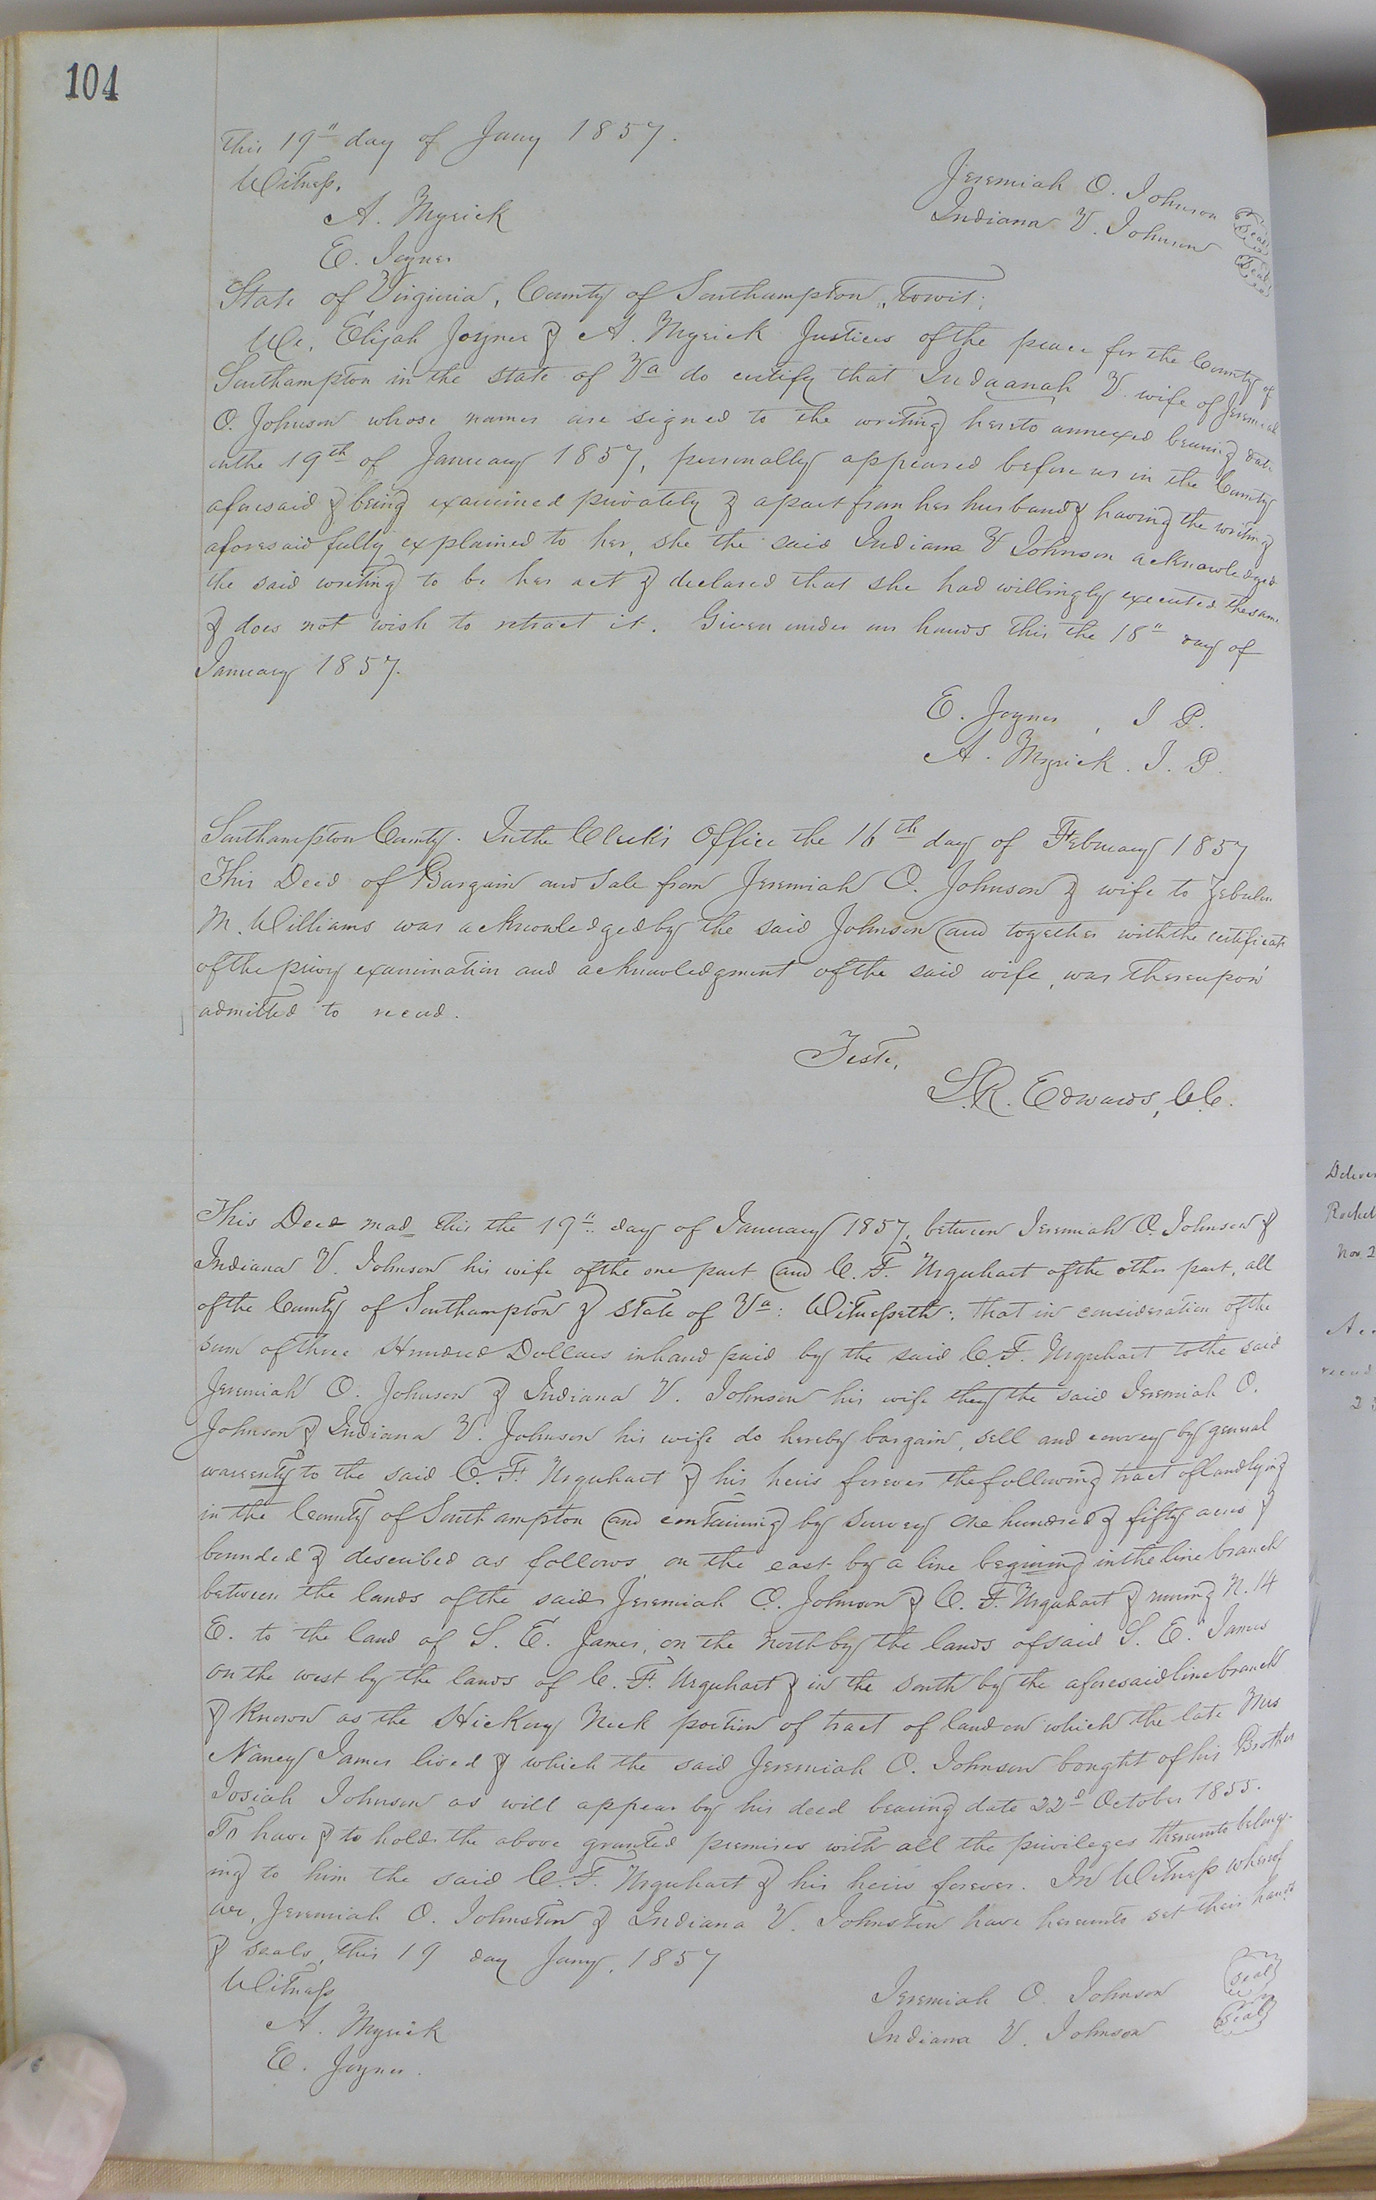 104
This 19" day of Jany 1857.
Witness,
Jeremiah O. Johnson Seal
A. Myrick
Indiana V. Johnson Seal
E. Joyner
State of Virginia, County of Southampton, Towit;
We, Elijah Joyner & A. Myrick Justices of the peace for the County of
Southampton in the state of Va do certify that Indaanah V. wife of Jeremiah
O. Johnson whose names are signed to the writing hereto annexed bearing date
on the 19th of January 1857, personally appeared before us in the County
aforesaid & being examined privately & apart from her husband & having the writing
aforesaid fully explained to her, she the said Indiana V Johnson acknowledged
the said writing to be her act & declared that she had willingly executed the same
& does not wish to retract it. Given under our hands this the 18" day of
January 1857.
E. Joyner, J P.
A. Myrick. J. P.
Southampton County. In the Clerk's Office the 16th day of February 1857
This Deed of Bargain and Sale from Jeremiah O. Johnson & wife to Zebulon
M. Williams was acknowledged by the said Johnson and together with the certificate
of the privy examination and acknowledgment of the said wife, was thereupon
admitted to record.
Teste,
L.R. Edwards, C.C.
This Deed mad this the 19" day of January 1857, between Jeremiah O. Johnson &
Indiana V. Johnson his wife of the one part and C. F. Urquhart of the other part, all
of the County of Southampton & State of Va: Witnesseth: that in consideration of the
sum of three Hundred Dollars in hand paid by the said C. F. Urquhart to the said
Jeremiah O. Johnson & Indiana V. Johnson his wife they the said Jeremiah O.
Johnson & Indiana V. Johnson his wife do hereby bargain, sell and convey by general
warrenty to the said C. F. Urquhart & his heirs forever the following tract of land lying
in the County of Southampton and containing by survey One hundred & fifty acres &
bounded & described as follows, on the east by a line begining in the line branch
between the lands of the said Jeremiah O. Johnson & C. F. Urquhart & runing N. 14
E. to the land of S. E. James, on the north by the lands of said S. E. James
on the west by the lands of C. F. Urquhart & in the south by the aforesaid line branch
& Known as the Hickory Neck portion of tract of land on which the late Mrs
Nancy James lived & which the said Jeremiah O. Johnson bought of his Brother
Josiah Johnson as will appear by his deed bearing date 22d October 1855.
To have & to hold the above granted premises with all the privileges thereunto belong-
ing to him the said C. F. Urquhart & his heirs forever. In Witness whereof
we, Jeremiah O. Johnston & Indiana V. Johnston have hereunto set their hands
& seals, this 19 day Jany, 1857
Witness
Jeremiah O. Johnson Seal
A. Myrick
Indiana V. Johnson Seal
E. Joyner.
Nov. 2